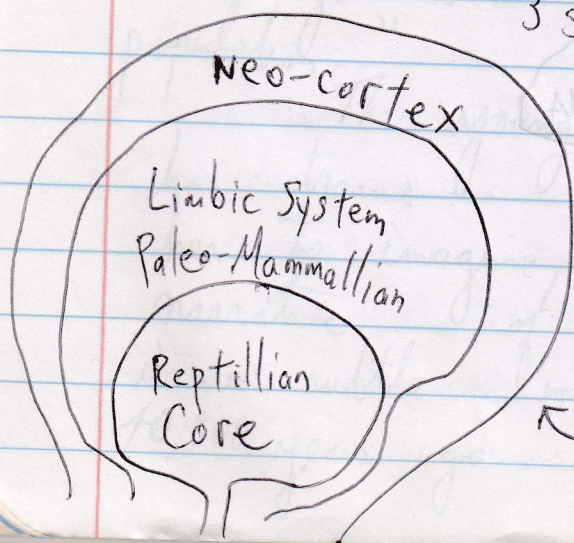 3 s
Neo-cortex
Limbic System
Paleo-Mammallian
Reptillian
Core